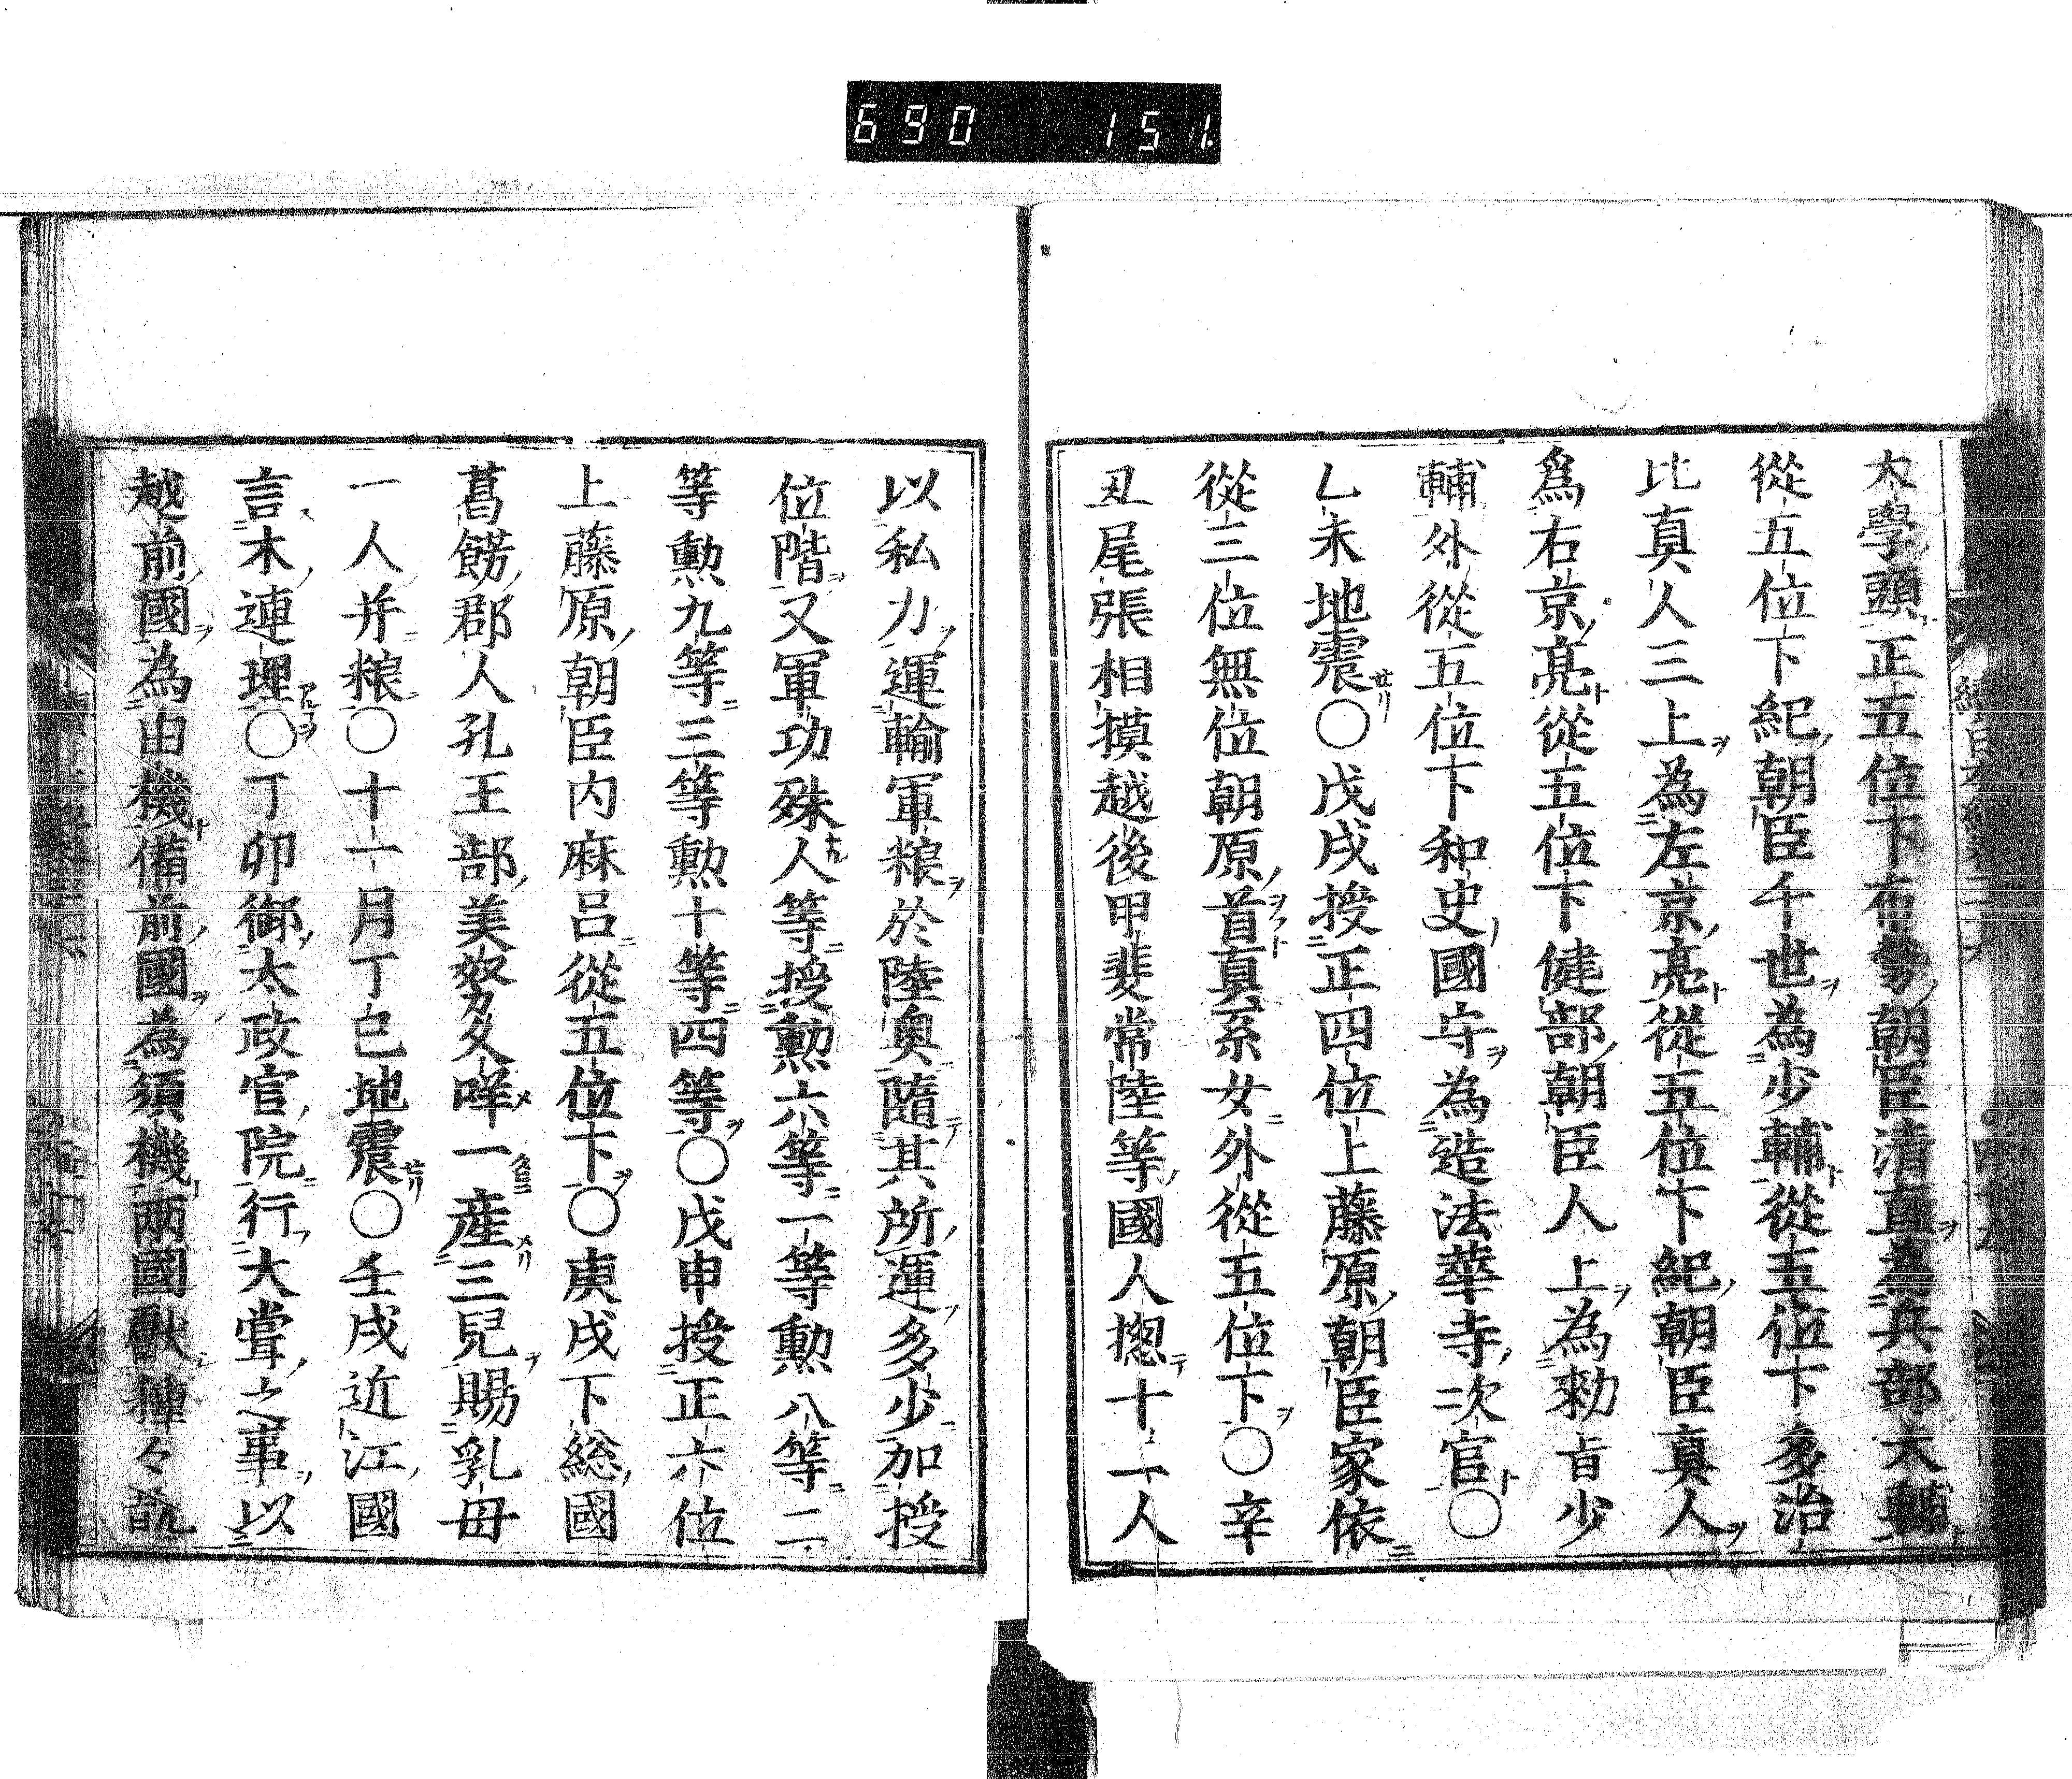 690 151
太學頭正五位下布勢朝臣清直為兵部大輔
從五位下紀朝臣千世為少輔從五位下多治
比真人三上為左京亮從五位下紀朝臣真人
爲右京亮從五位下健部朝臣人上為勅旨少
輔外從五位下和史國守為造法華寺次官〇
乙未地震〇戊戌授正四位上藤原朝臣家依
從三位無位朝原首真糸女外從五位下〇辛
丑尾張相摸越後甲斐常陸等國人捴十一人
以私力運輸軍粮於陸奥隨其所運多少加授
位階又軍功殊人等授勲六等一等勲八等二
等勲九等三等勲十等四等〇戊申授正六位
上藤原朝臣内麻呂從五位下〇庚戌下総國
葛餝郡人孔王部美努久咩一産三兒賜乳母
一人并粮〇十一月丁巳地震〇壬戌近江國
言木連理〇丁卯御太政官院行大甞之事以
越前國為由機備前國為須機两國獻種々翫